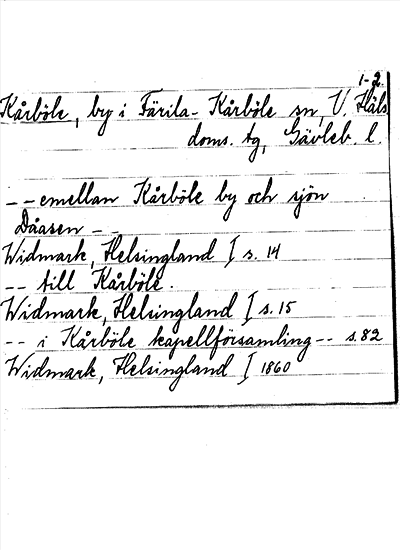 1-2.
Kårböle, by i Färila-Kårböle sn, V. Häls
doms. tg, Gävleb. l.
-- emellan Kårböle by och sjön
Dåasen --
Widmark, Helsingland I s. 14
-- till Kårböle.
Widmark, Helsingland I s. 15
-- i Kårböle kapellförsamling -- s. 82
Widmark, Helsingland I 1860